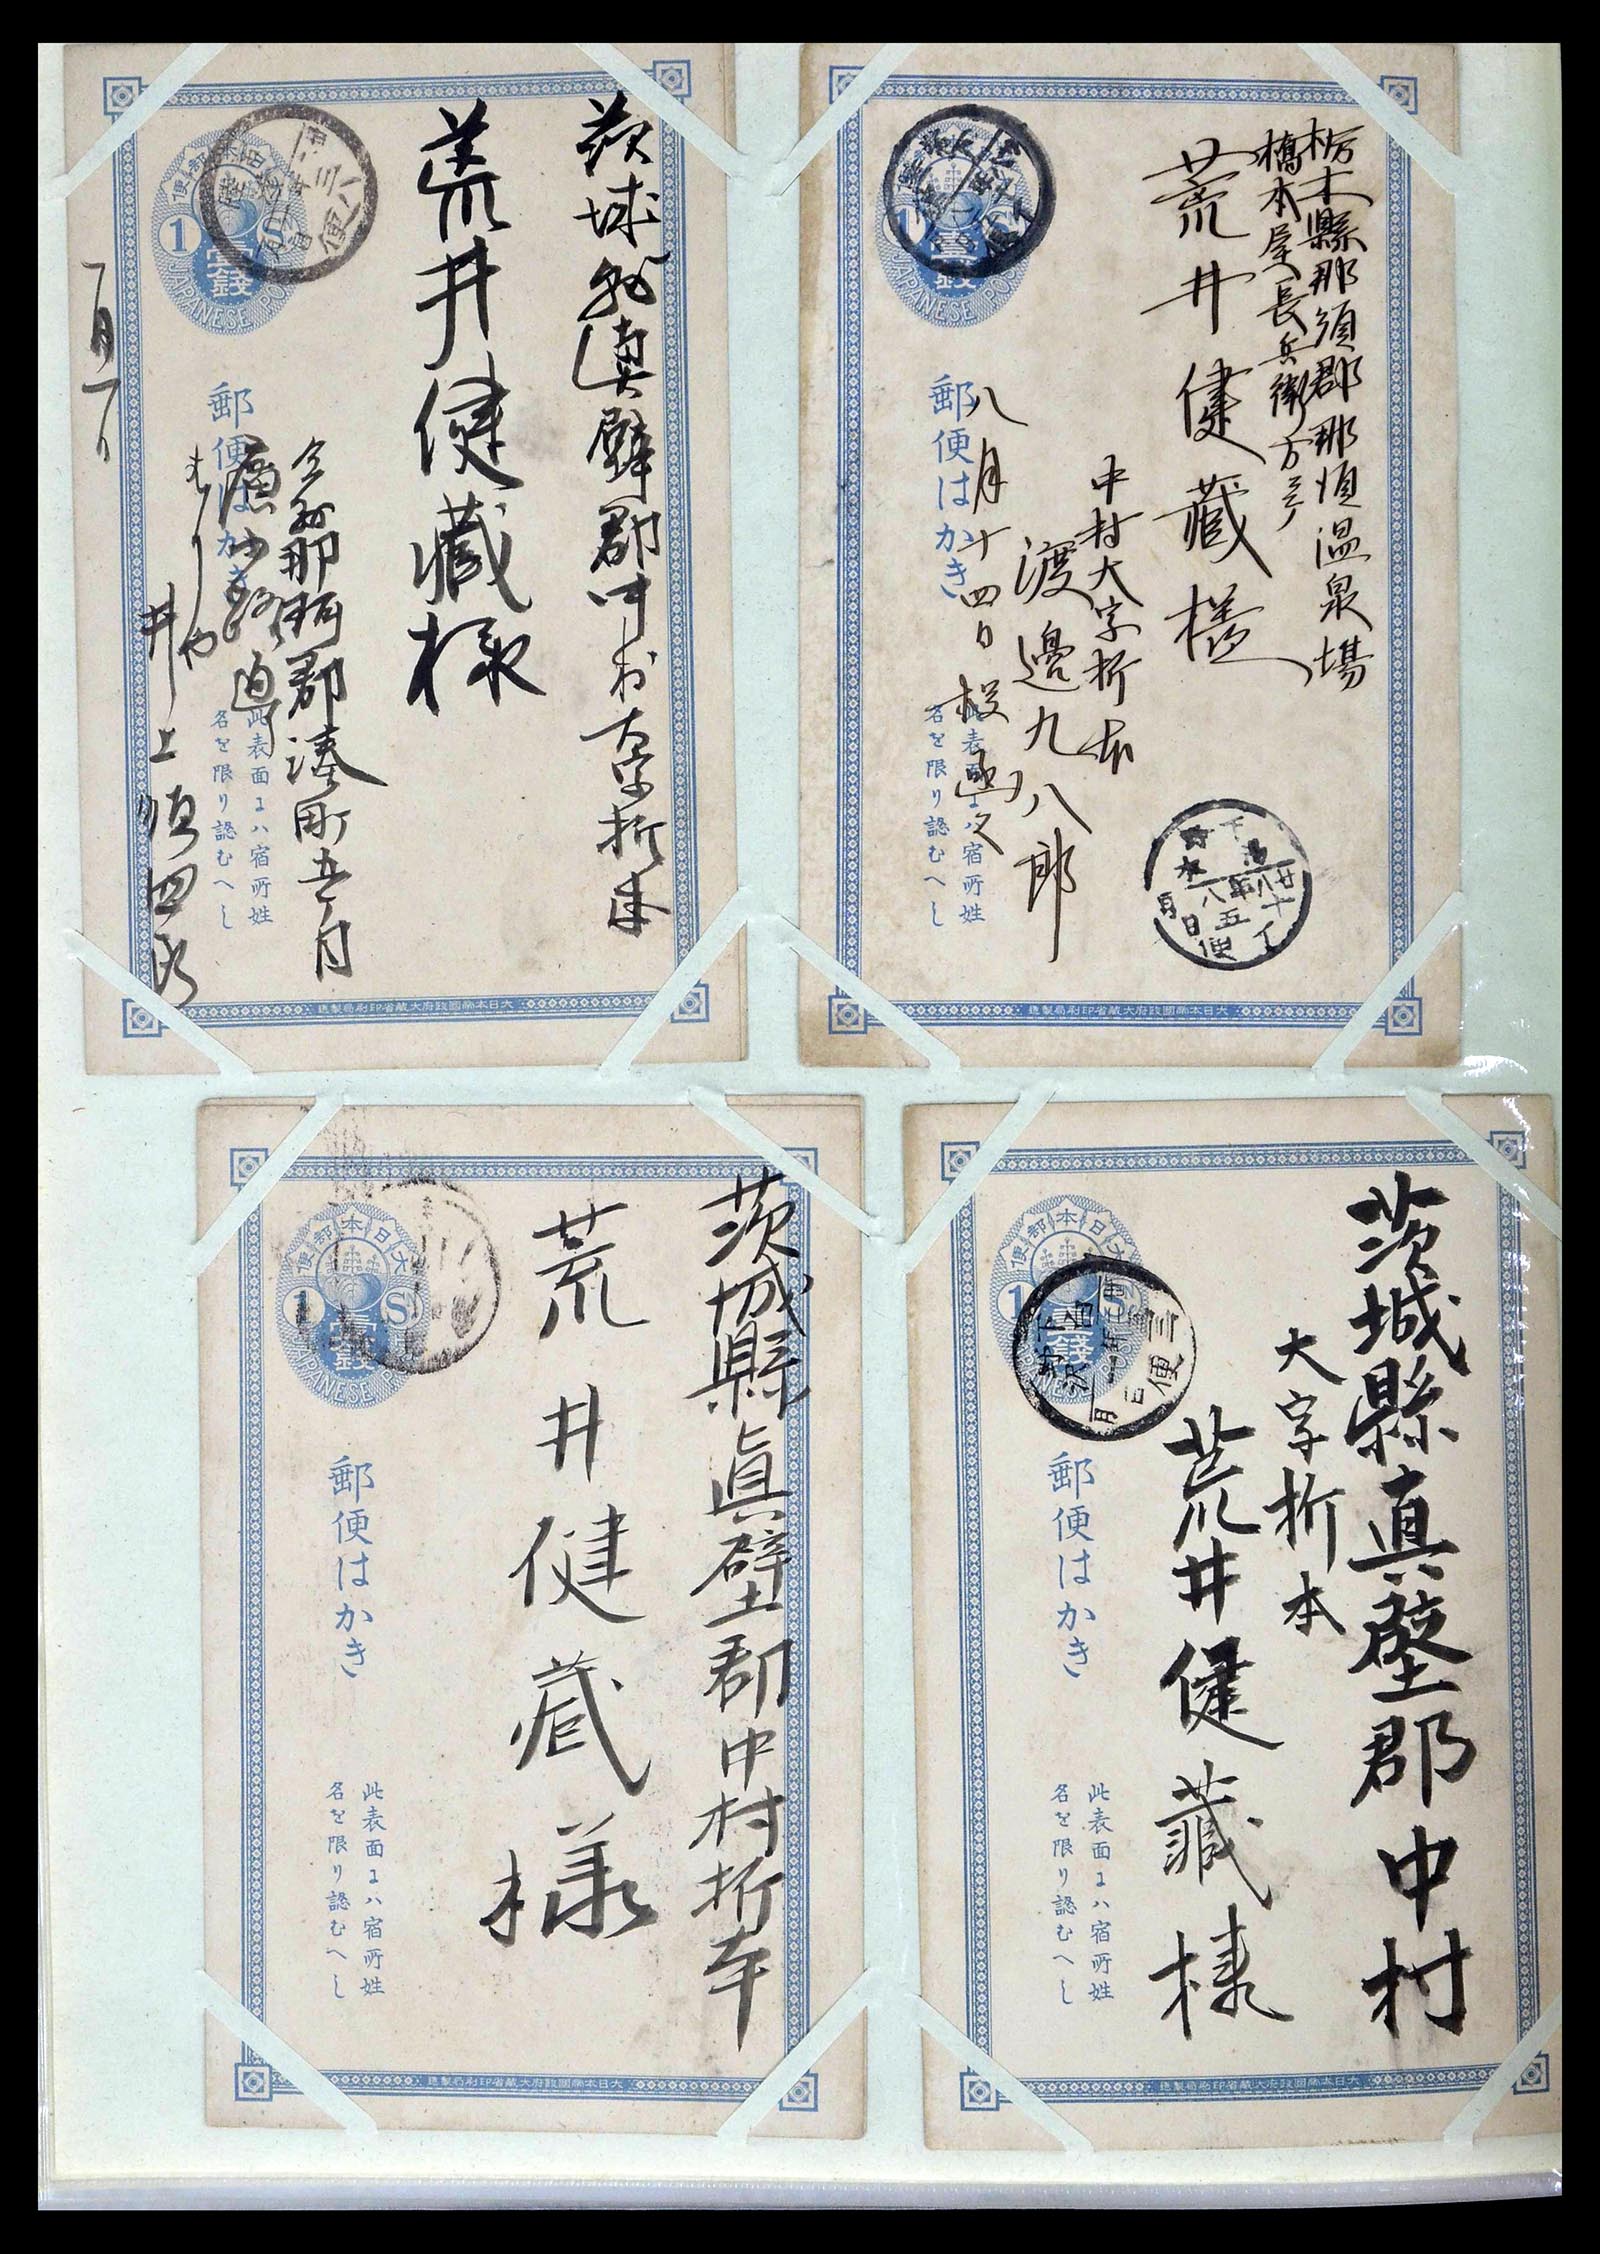 茨城縣真壁郡中村大字折本
荒井健藏様
仝縣那珂郡湊町
井上
一月一日
大日本郵便
1 S
壹錢
JAPANESE POST
郵便はかき
此表面ニハ宿所姓
名を限り認むへし
大日本帝國政府大藏省印刷局製造
栃木縣那須郡那須温泉場
橋本屋長兵衛方ニテ
荒井健藏様
中村大字折本
渡邉九八郎
八月十四日投函ス
壹錢
JAPANESE POST
郵便はかき
此表面ニハ宿所姓
名を限り認むへし
廿八年
八月
十五日
便
大日本帝國政府大藏省印刷局製造
茨城縣眞壁郡中村折本
荒井健藏様
大日本郵便
1 S
壹錢
JAPANESE POST
郵便はかき
此表面ニハ宿所姓
名を限り認むへし
大日本帝國政府大藏省印刷局製造
茨城縣真壁郡中村
大字折本
荒井健藏様
1 S
壹錢
郵便はかき
此表面ニハ宿所姓
名を限り認むへし
大日本帝國政府大藏省印刷局製造